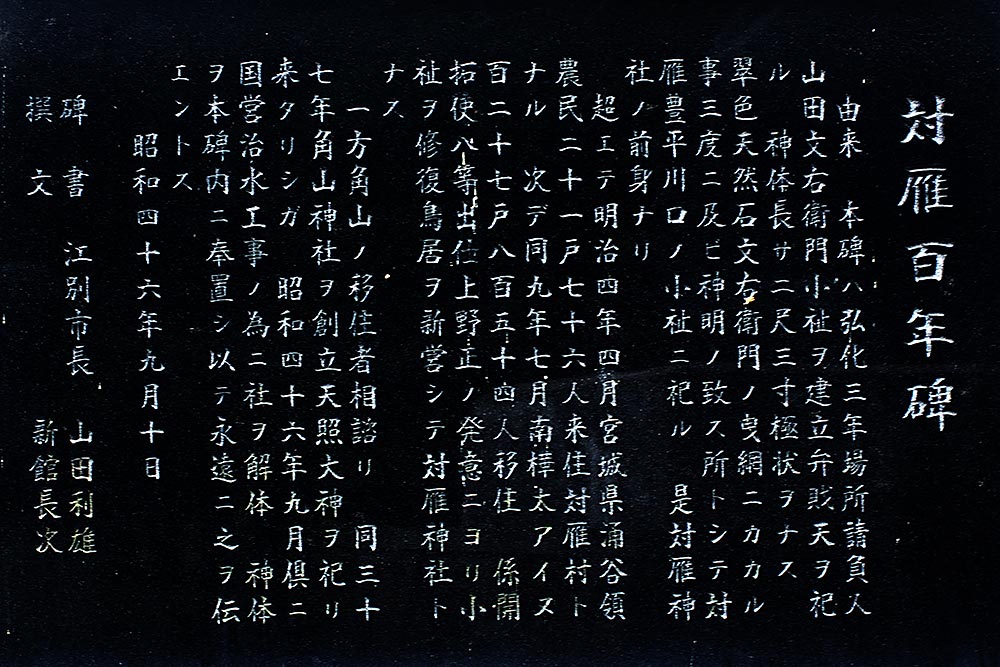 対雁百年碑
由来 本碑ハ弘化三年場所請負人
山田文右衛門小祉ヲ建立弁賎天ヲ祀
ル 神体長サ二尺三寸極状ヲナス
翠色天然石文右衛門ノ曳網ニカカル
事三度ニ及ビ神明ノ致ス所トシテ対
雁豊平川口ノ小祉ニ祀ル 是対雁神
社ノ前身ナリ
超エテ明治四年四月宮城県涌谷領
農民二十一戸七十六人来住対雁村ト
ナル 次デ同九年七月南樺太アイヌ
百二十七戸八百五十四人移住 係開
拓使八等出仕上野正ノ発意ニヨリ小
祉ヲ修復鳥居ヲ新営シテ対雁神社ト
ナス
一方角山ノ移住者相諮リ 同三十
七年角山神社ヲ創立天照大神ヲ祀リ
来タリシガ 昭和四十六年九月俱ニ
国営治水工事ノ為ニ社ヲ解体 神体
ヲ本碑内ニ奉置シ以テ永遠ニ之ヲ伝
エントス
昭和四十六年九月十日
碑書 江別市長 山田利雄
撰文 新館長次